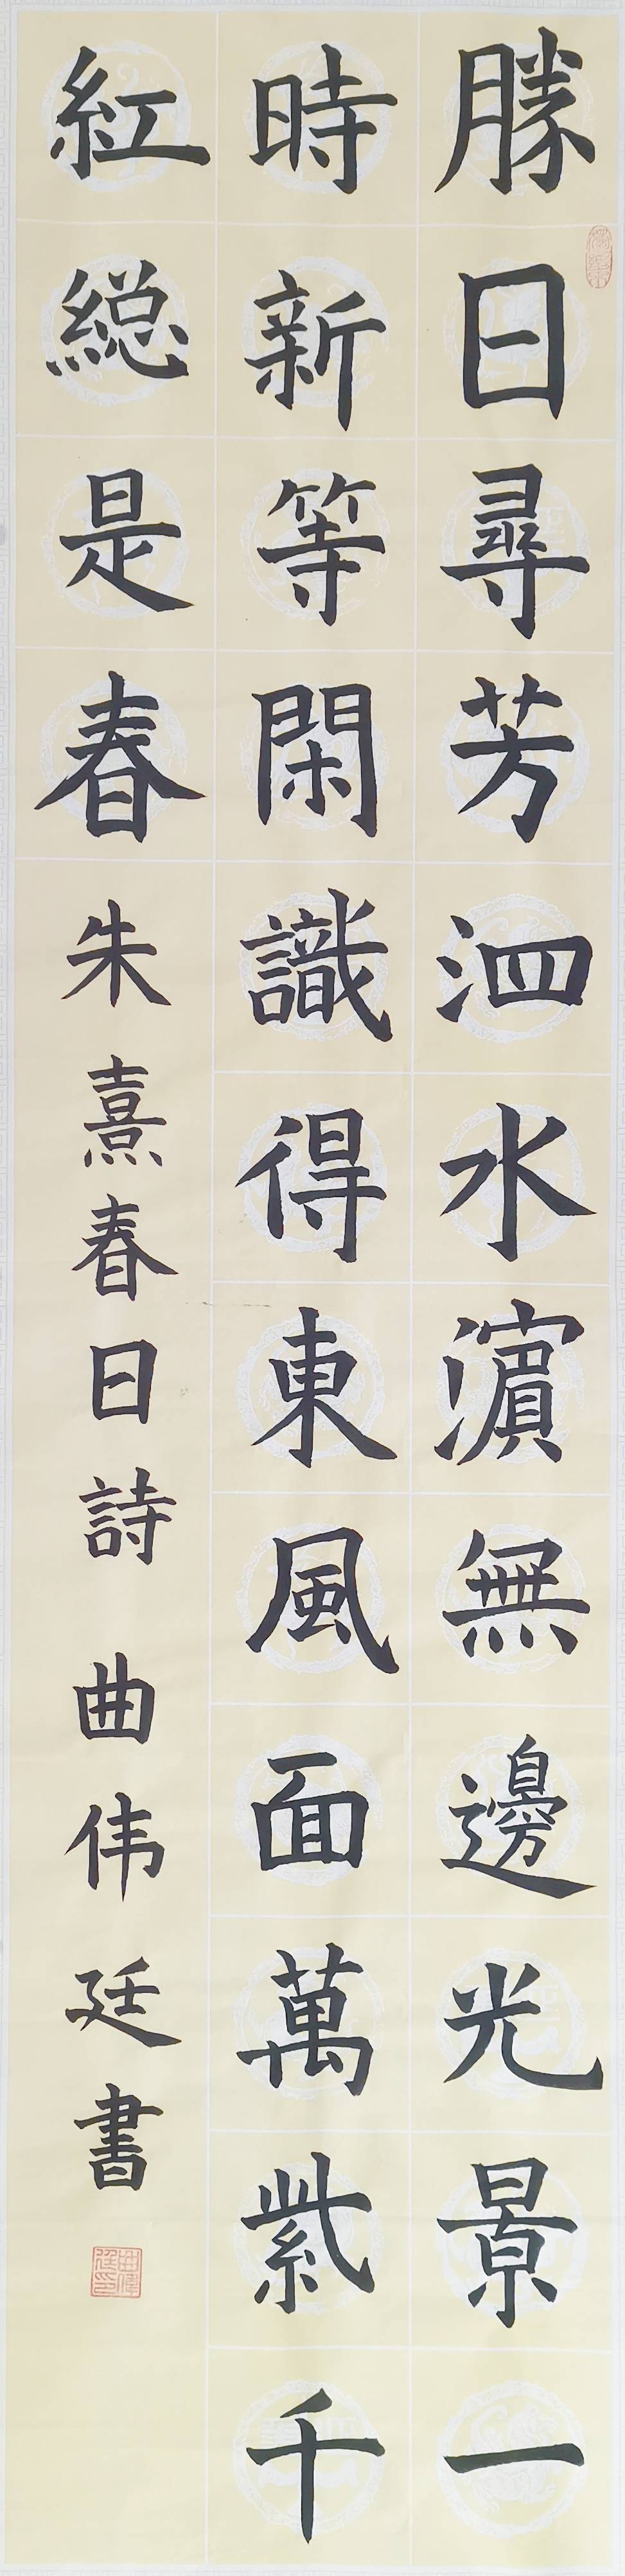 勝日尋芳泗水濵無邊光景一
時新等閑識得東風面萬紫千
紅総是春 朱熹春日詩 曲伟廷書